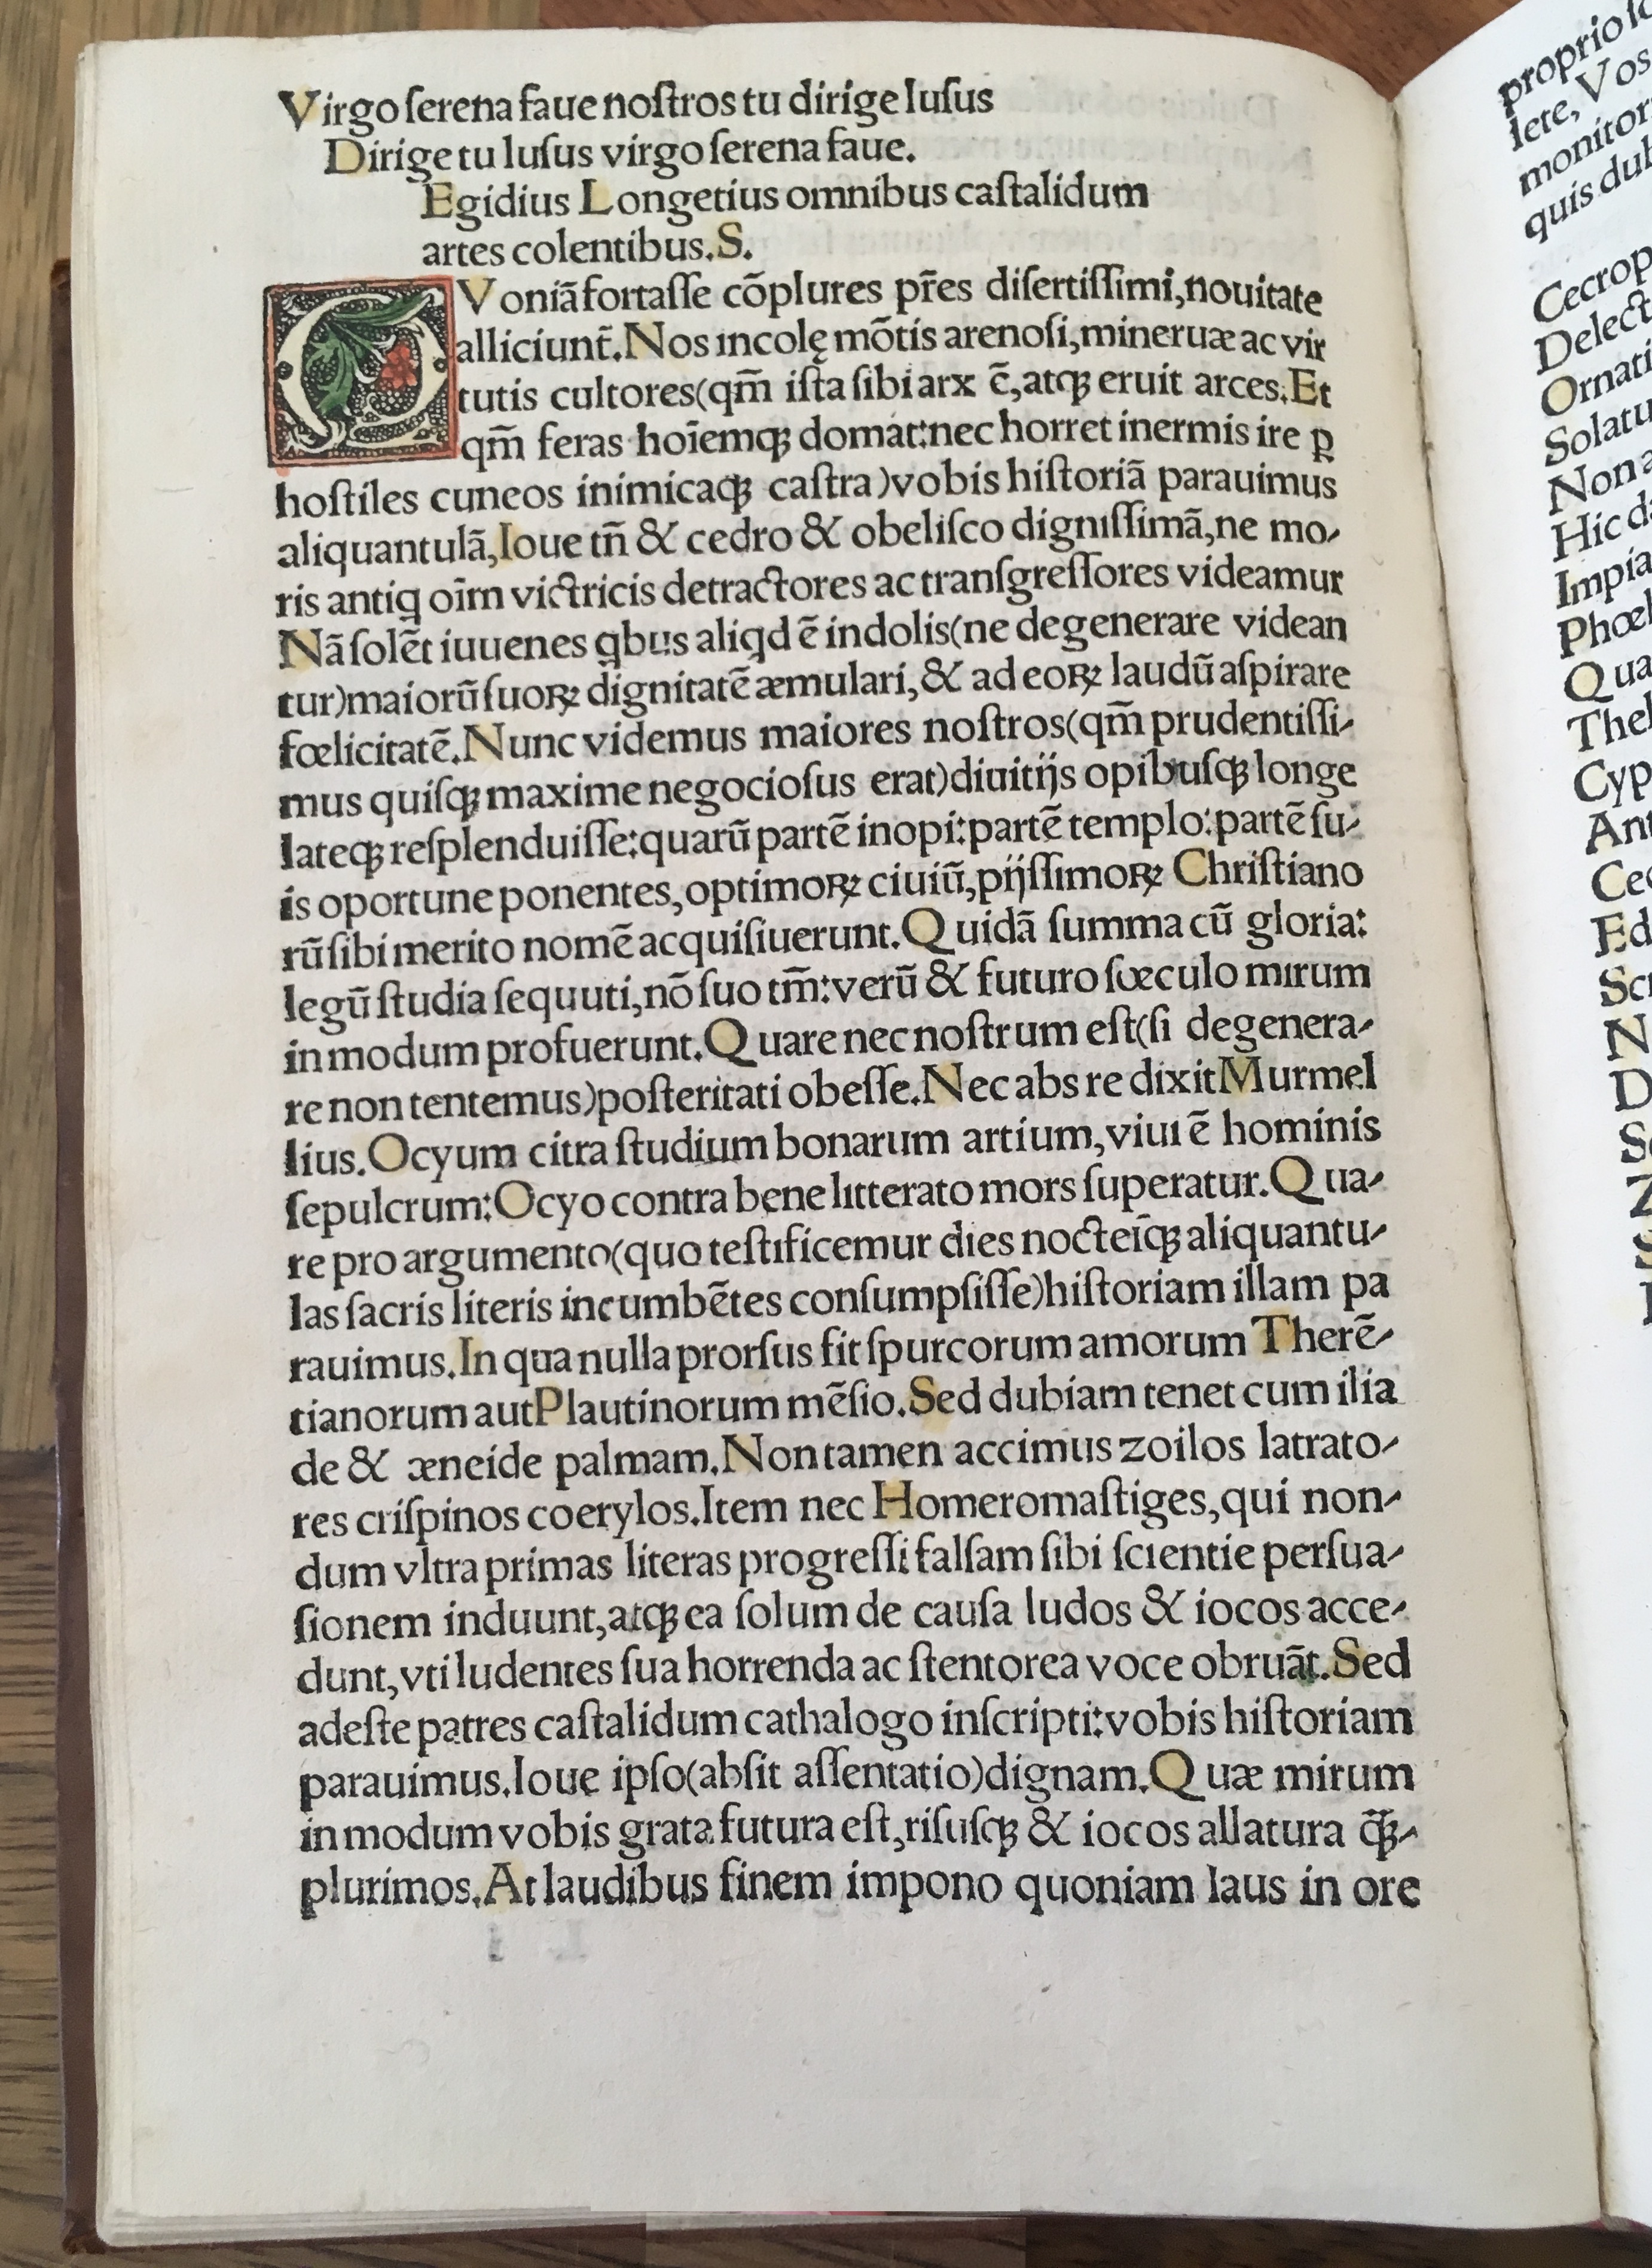 Virgo ſerena faue noſtros tu dirige luſus
Dirige tu luſus virgo ſerena faue.
Egidius Longetius omnibus caſtalidum
artes colentibus.S.
QVoniā fortaſſe cōplures pr̄es diſertiſſimi,nouitate
alliciunt̄.Nos incolę mōtis arenoſi,mineruæ ac vir
tutis cultores(qm̄ iſta ſibi arx ē,atqꝫ eruit arces.Et
qm̄ feras hoīemqꝫ domat:nec horret inermis ire ꝑ
hoſtiles cuneos inimicaqꝫ caſtra)vobis hiſtoriā parauimus
aliquantulā,Ioue tn̄ & cedro & obeliſco digniſſimā,ne mo⸗
ris antiꝗ oīm victricis detractores ac tranſgreſſores videamur
Nā ſolēt iuuenes ꝗbus aliꝗd ē indolis(ne degenerare videan
tur)maiorū ſuoꝝ dignitatē æmulari,& ad eoꝝ laudū aſpirare
fœlicitatē.Nunc videmus maiores noſtros(qm̄ prudentiſſi⸗
mus quiſqꝫ maxime negocioſus erat)diuitijs opibuſqꝫ longe
lateqꝫ reſplenduiſſe:quarū partē inopi:partē templo:partē ſu⸗
is oportune ponentes,optimoꝝ ciuiū,pijſſimoꝝ Chriſtiano
rū ſibi merito nomē acquiſiuerunt.Quidā ſumma cū gloria:
legū ſtudia ſequuti,nō ſuo tm̄:verū & futuro ſœculo mirum
in modum profuerunt.Quare nec noſtrum eſt(ſi degenera⸗
re non tentemus)poſteritati obeſſe.Nec abs re dixit Murmel
lius.Ocyum citra ſtudium bonarum artium,viui ē hominis
ſepulcrum:Ocyo contra bene litterato mors ſuperatur.Qua⸗
re pro argumento(quo teſtificemur dies nocteīqꝫ aliquantu⸗
las ſacris literis incumbētes conſumpſiſſe)hiſtoriam illam pa
rauimus.In qua nulla prorſus fit ſpurcorum amorum Therē⸗
tianorum aut Plautinorum mēſio.Sed dubiam tenet cum ilia
de & æneide palmam.Non tamen accimus zoilos latrato⸗
res criſpinos coerylos.Item nec Homeromaſtiges,qui non⸗
dum vltra primas literas progreſſi falſam ſibi ſcientie perſua⸗
ſionem induunt,atqꝫ ea ſolum de cauſa ludos & iocos acce⸗
dunt,vti ludentes ſua horrenda ac ſtentorea voce obruāt.Sed
adeſte patres caſtalidum cathalogo inſcripti:vobis hiſtoriam
parauimus.Ioue ipſo(abſit aſſentatio)dignam.Quæ mirum
in modum vobis grata futura eſt,riſuſqꝫ & iocos allatura q̄ꝫ⸗
plurimos.At laudibus finem impono quoniam laus in ore
proprio
lete, Vos
monitor
quis dub
Cecrop
Delect
Ornati
Solatu
Non a
Hic d
Impia
Phœb
Qua
Thel
Cyp
Ant
Cec
Ed
Scr
N
D